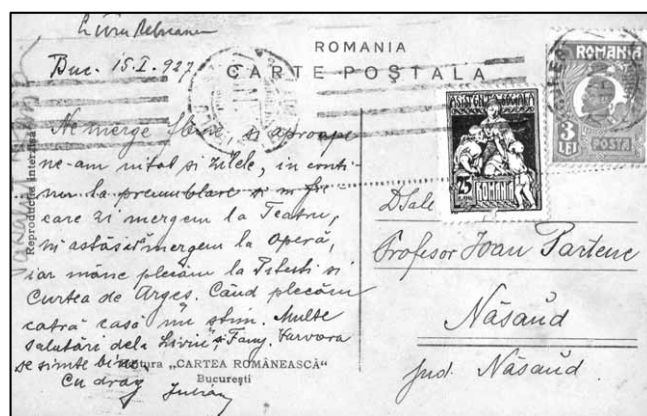 Liviu Rebreanu
Buc. 15.I.927
ROMANIA
CARTE POSTALA
Ne merge bine si aproape
ne-am uitat si zilele, in conti-
nu la preumblare si in fie
care zi mergem la Teatru,
astăsi mergem la Operă,
iar mâne plecăm la Pitesti si
Curtea de Arges. Când plecăm
catră casă nu stim. Multe
salutări dela Liviu si Fany. Varvora
se simte bine.
Cu drag
Julian
Reproducerea interzisă
"CARTEA ROMÂNEASCĂ"
Bucureşti
ASISTENTA SOCIALA
25
ROMANIA
3
LEI
POSTA
DSale
Profesor Ioan Partene
Năsăud
jud. Năsăud